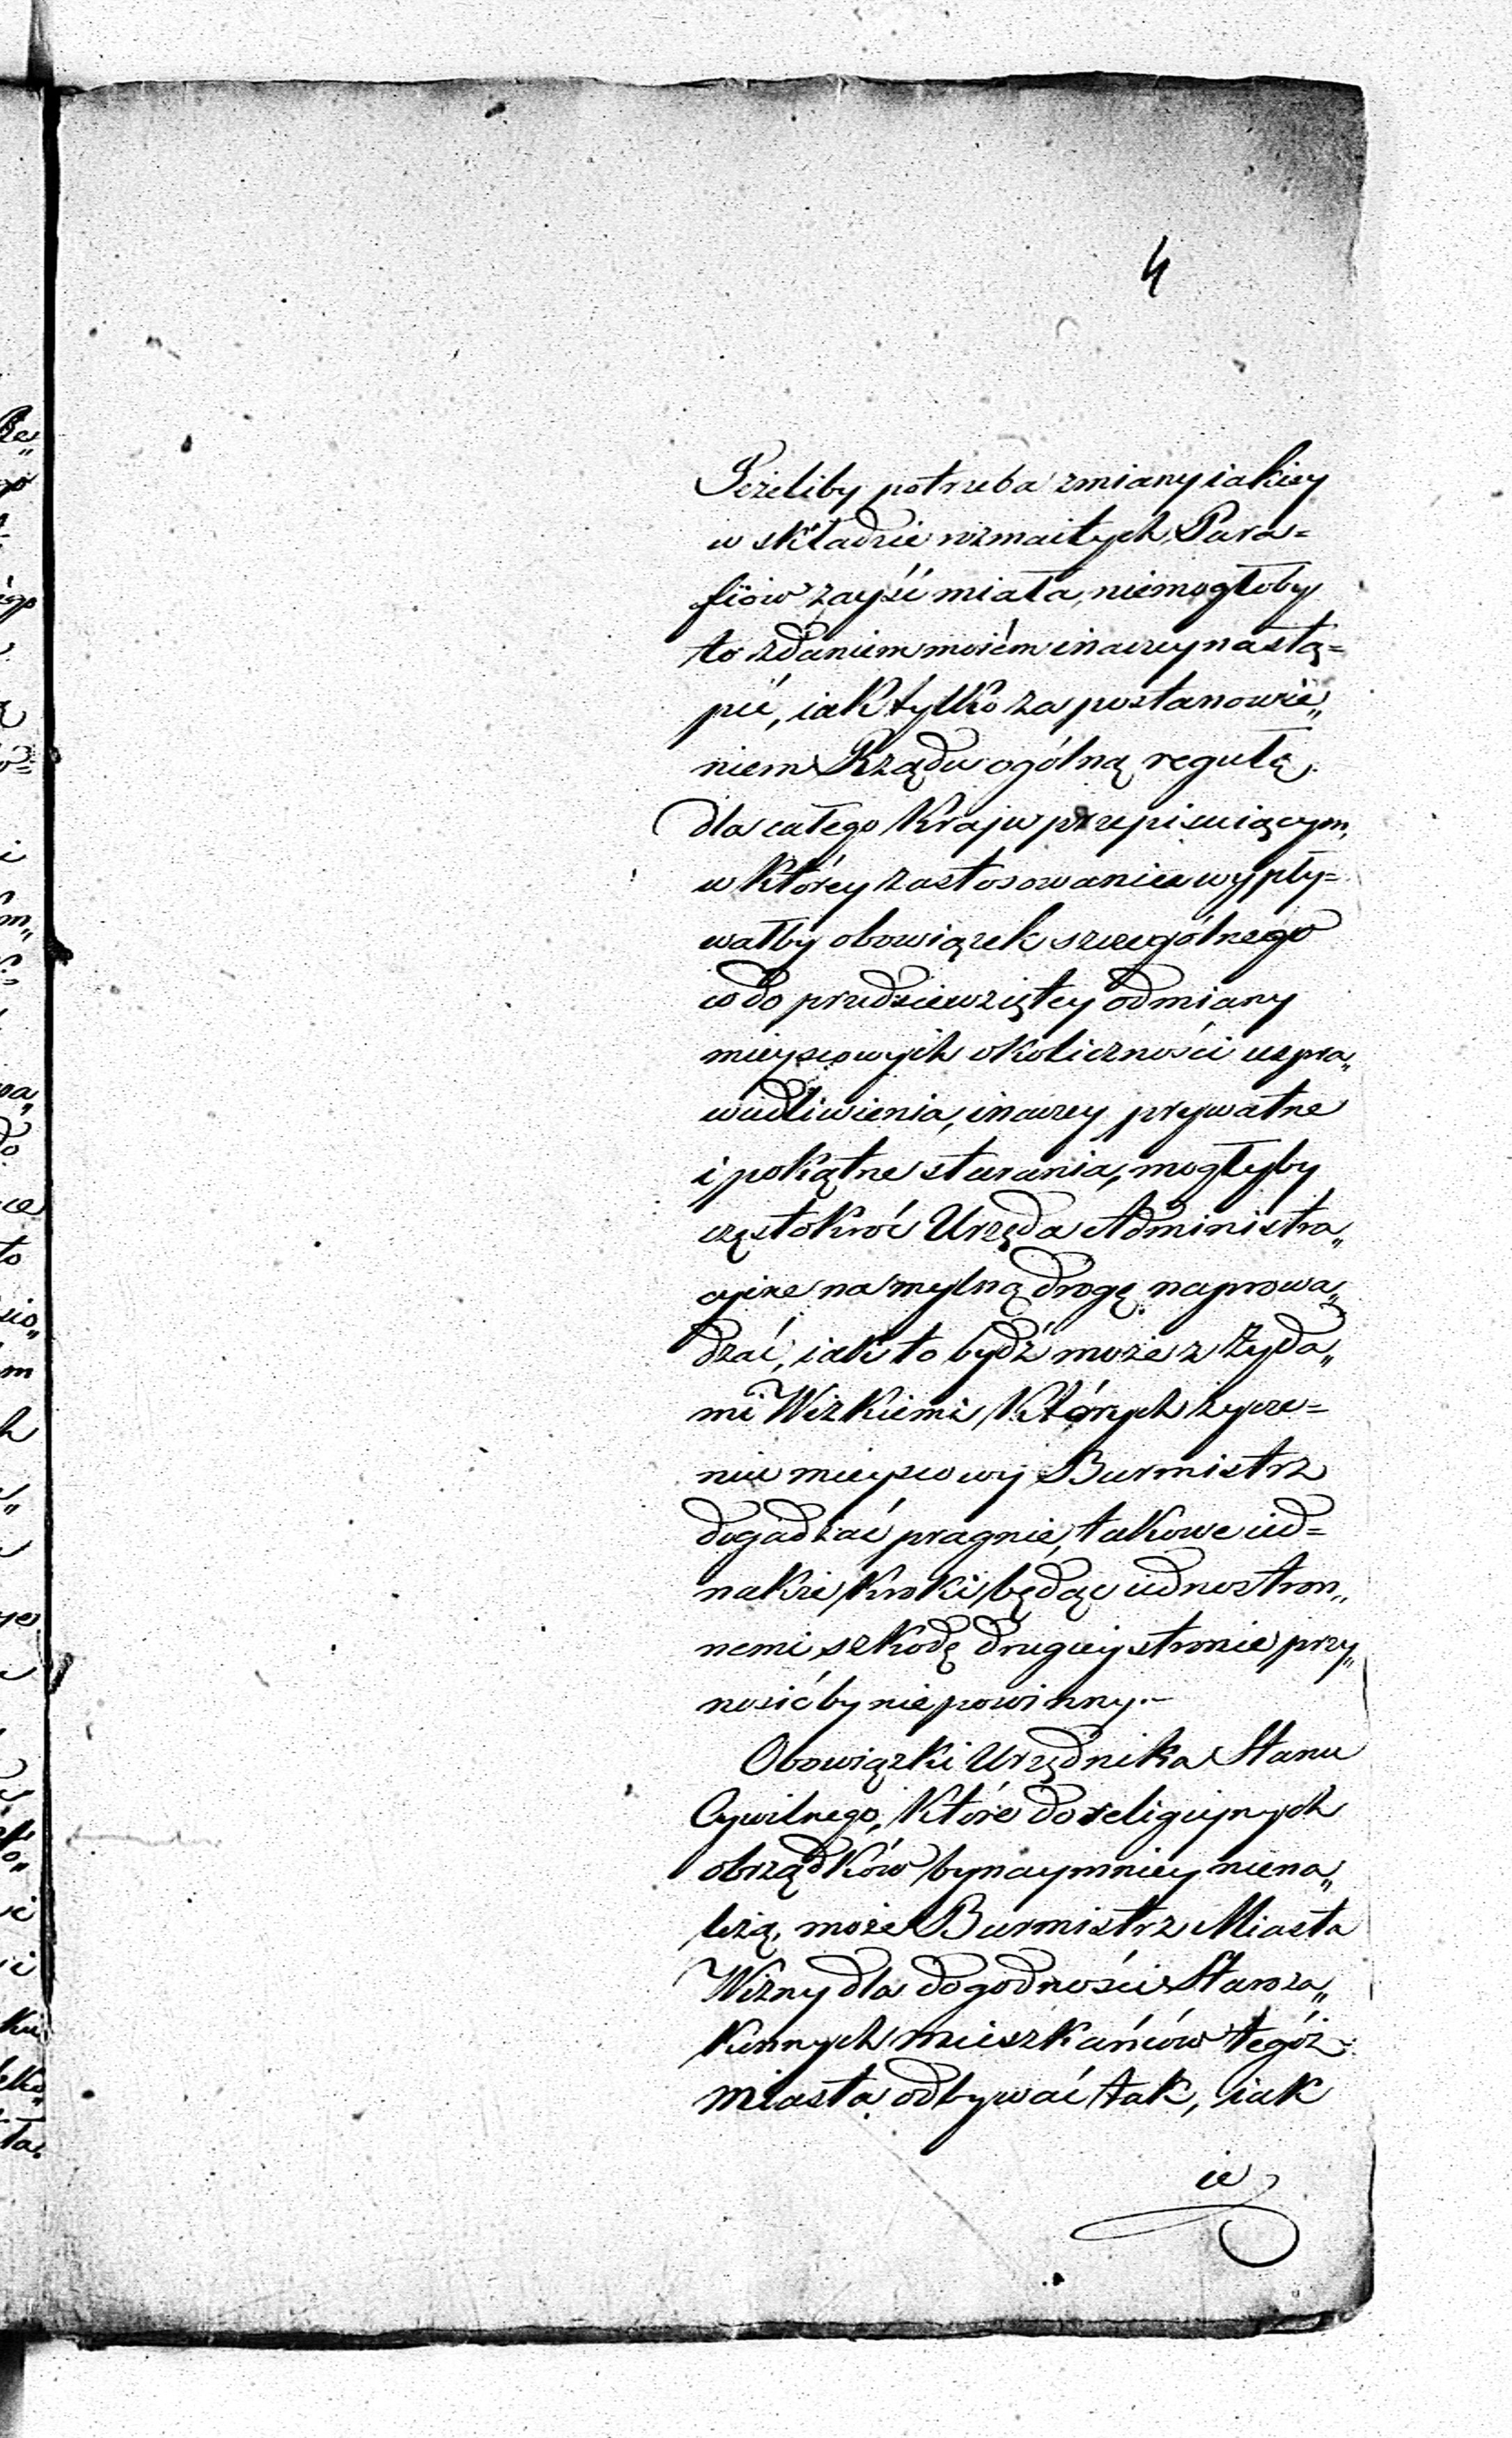 4
Jeżeliby potrzeba zmiany iakiey
w składzie rozmaitych Para=
fiiow zayść miała, niemogłoby
to zdaniem moiém inaczey nastą=
pić, iak tylko za postanowie„
niem Rządu ogólną regułę
dla całego Kraju przepisuiącym,
w którey zastosowaniu wypły=
wałby obowiązek szczególnego
co do przedsiewziętey odmiany
mieyscowych okoliczności uspra„
wiedliwienia, inaczey prywatne
i pokątne starania, mogłyby
częstokroć Urzęda Administra„
cyine na mylną drogę naprowa„
dzać, iak to bydź może z Żyda„
mi Wizkiemi których życze=
niu mieyscowy Burmistrz
dogadzać pragnie, takowe ied=
nakże kroki będąc iednostron„
nemi szkodę drugiey stronie przy„
nosić by nie powinny.-
Obowiązki Urzędnika Stanu
Cywilnego, które do religiynych
obrządków bynaymniey niena„
leżą, może Burmistrz Miasta
Wizny dla dogodności Staroza„
konnych mieszkańców tegóż
miasta odbywać tak, iak
ie